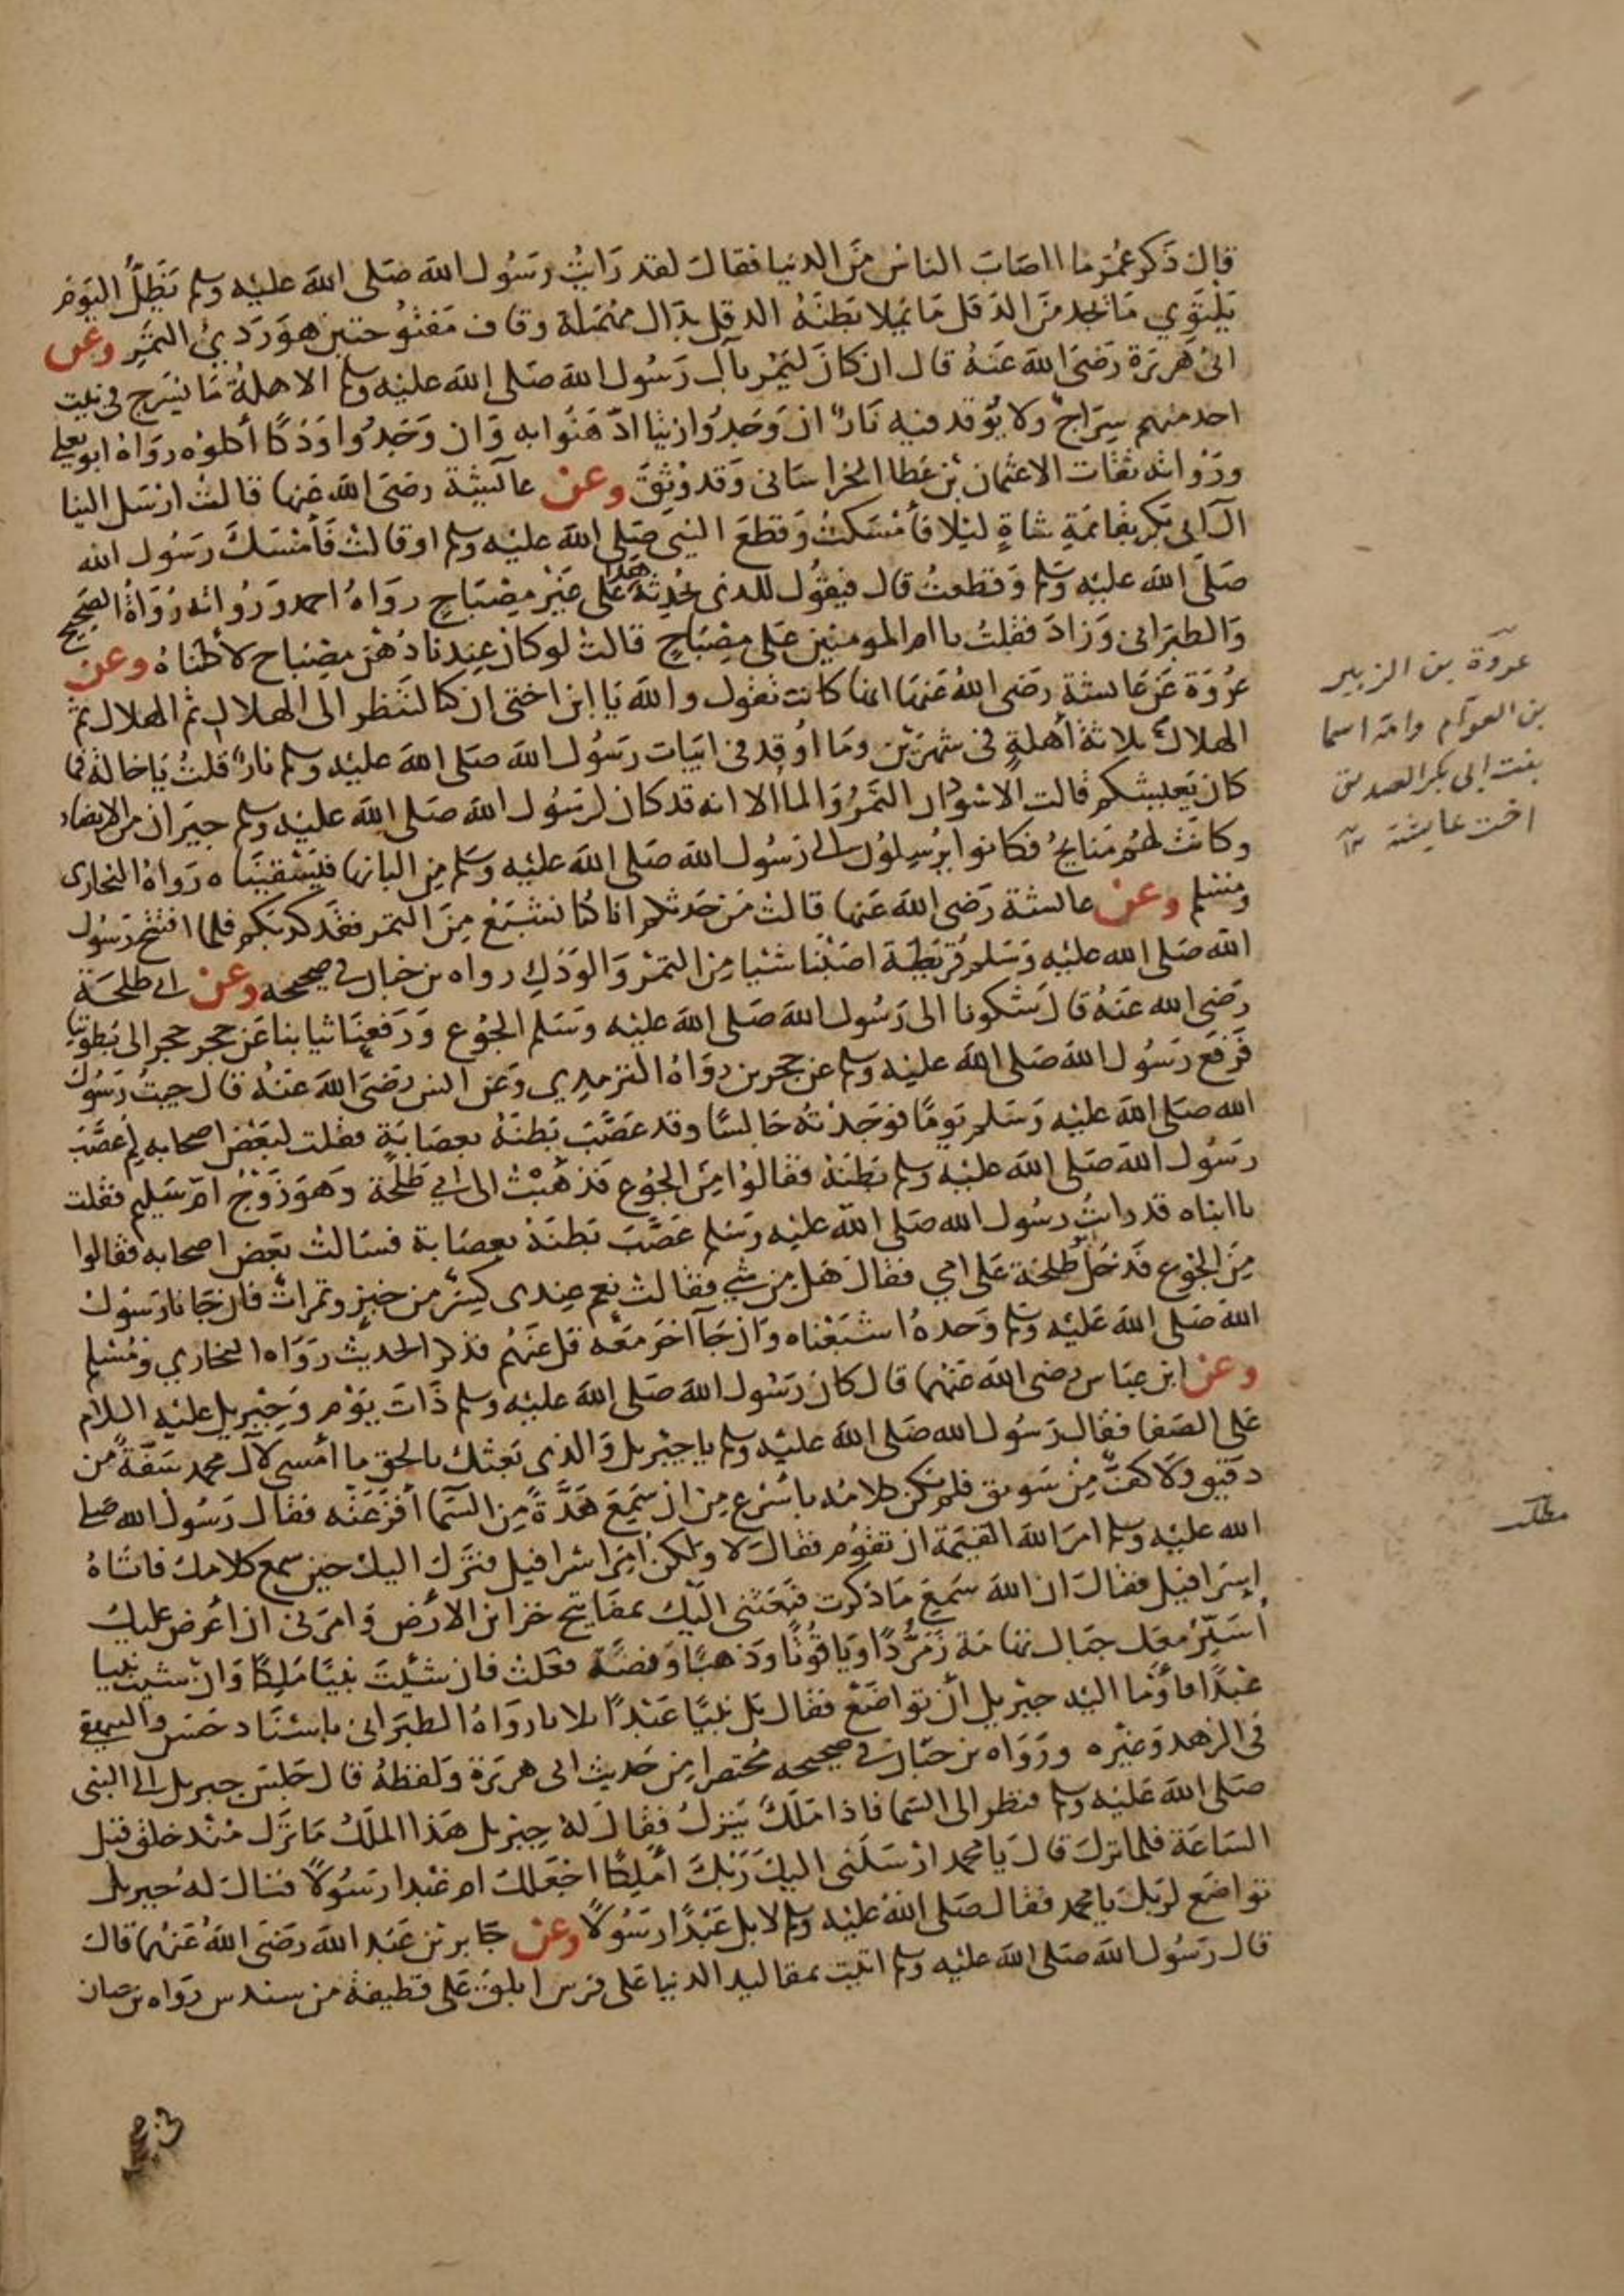 قال ذكر عمر ما اصاب الناس من الدنيا فقال لقد رايت رسول الله صلى الله عليه وسلم يظل اليوم
يلتوي ما يجد من الدقل ما يملا بطنه الدقل بدال مهملة وقاف مفتوحتين هو ردي التمر وعن
ابى هريرة رضى الله عنه قال ان كان ليمر بآل رسول الله صلى الله عليه وسلم الاهلة ما يسرج فى بيت
احد منهم سراج ولا يوقد فيه نار ان وجدوا زيتا ادهنوا به وان وجدوا ودكا أكلوه رواه ابو يعلى
ورواته ثقات الا عثمان بن عطا الخراسانى وقد وثق وعن عائشة رضى الله عنها قالت ارسل الينا
آل ابى بكر بقائمة شاة ليلا فأمسكت وقطع النبى صلى الله عليه وسلم او قالت فأمسك رسول الله
صلى الله عليه وسلم وقطعت قال فيقول للذى تحدثه هذا على غير مصباح رواه احمد ورواته رواة الصحيح
والطبرانى وزاد فقلت يا ام المومنين على مصباح قالت لو كان عندنا دهن مصباح لأكلناه وعن
عروة عن عائشة رضى الله عنها انها كانت تقول والله يا ابن اختى ان كنا لننظر الى الهلال ثم الهلال ثم
الهلال ثلاثة أهلة فى شهرين وما اوقد فى ابيات رسول الله صلى الله عليه وسلم نار قلت يا خالة فما
كان يعيشكم قالت الاسودان التمر والما الا انه قد كان لرسول الله صلى الله عليه وسلم جيران من الانصار
وكانت لهم منايح فكانوا يرسلون الى رسول الله صلى الله عليه وسلم من البانها فيسقيناه رواه البخارى
ومسلم وعن عائشة رضى الله عنها قالت من حدثكم انا كنا نشبع من التمر فقد كذبكم فلما افتتح رسول
الله صلى الله عليه وسلم قريظة اصبنا شيا من التمر والودك رواه بن حبان فى صحيحه وعن ابى طلحة
رضى الله عنه قال شكونا الى رسول الله صلى الله عليه وسلم الجوع ورفعنا ثيابنا عن حجر حجر الى بطوننا
فرفع رسول الله صلى الله عليه وسلم عن حجرين رواه الترمذي وعن انس رضى الله عنه قال جيت رسول
الله صلى الله عليه وسلم يوما فوجدته جالسا وقد عصب بطنه بعصابة فقلت لبعض اصحابه لم عصب
رسول الله صلى الله عليه وسلم بطنه فقالوا من الجوع فذهبت الى ابي طلحة وهو زوج ام سليم فقلت
يا ابتاه قد رايت رسول الله صلى الله عليه وسلم عصب بطنه بعصابة فسالت بعض اصحابه فقالوا
من الجوع فدخل ابو طلحة على امي فقال هل من شي فقالت نعم عندى كسر من خبز وتمرات فان جانا رسول
الله صلى الله عليه وسلم وحده اشبعناه وان جآ آخر معه قل عنهم فذكر الحديث رواه البخاري ومسلم
وعن ابن عباس رضى الله عنهما قال كان رسول الله صلى الله عليه وسلم ذات يوم وجبريل عليه السلام
على الصفا فقال رسول الله صلى الله عليه وسلم يا جبريل والذى بعثك بالحق ما أمسى لآل محمد سفة من
دقيق ولا كف من سويق فلم يكن كلامه باسرع من ان سمع هدة من السما أفزعته فقال رسول الله صلى
الله عليه وسلم امر الله القيمة ان تقوم فقال لا ولكن أمر اسرافيل فنزل اليك حين سمع كلامك فاتاه
إسرافيل فقال ان الله سمع ما ذكرت فبعثنى اليك بمفاتيح خزاين الارض وامرنى ان أعرض عليك
أسير معك جبال تهامة زمردا وياقوتا وذهبا وفضة فعلت فان شئت نبيا ملكا وان شيت نبيا
عبدا فأومأ اليه جبريل أن تواضع فقال بل نبيا عبدا ثلاثا رواه الطبرانى باسناد حسن والبيهقى
فى الزهد وغيره ورواه بن حبان فى صحيحه مختصرا من حديث ابى هريرة ولفظه قال جلس جبريل الى النبى
صلى الله عليه وسلم فنظر الى السما فاذا ملك ينزل فقال له جبريل هذا الملك ما نزل منذ خلق قبل
الساعة فلما نزل قال يا محمد ارسلنى اليك ربك أملكا اجعلك ام عبدا رسولا فقال له جبريل
تواضع لربك يا محمد فقال صلى الله عليه وسلم لا بل عبدا رسولا وعن جابر بن عبد الله رضى الله عنهما قال
قال رسول الله صلى الله عليه وسلم اتيت بمقاليد الدنيا على فرس ابلق على قطيفة من سندس رواه بن حبان
عروة بن الزبير
بن العوام وامه اسما
بنت ابى بكر الصديق
اخت عايشة
مطلب